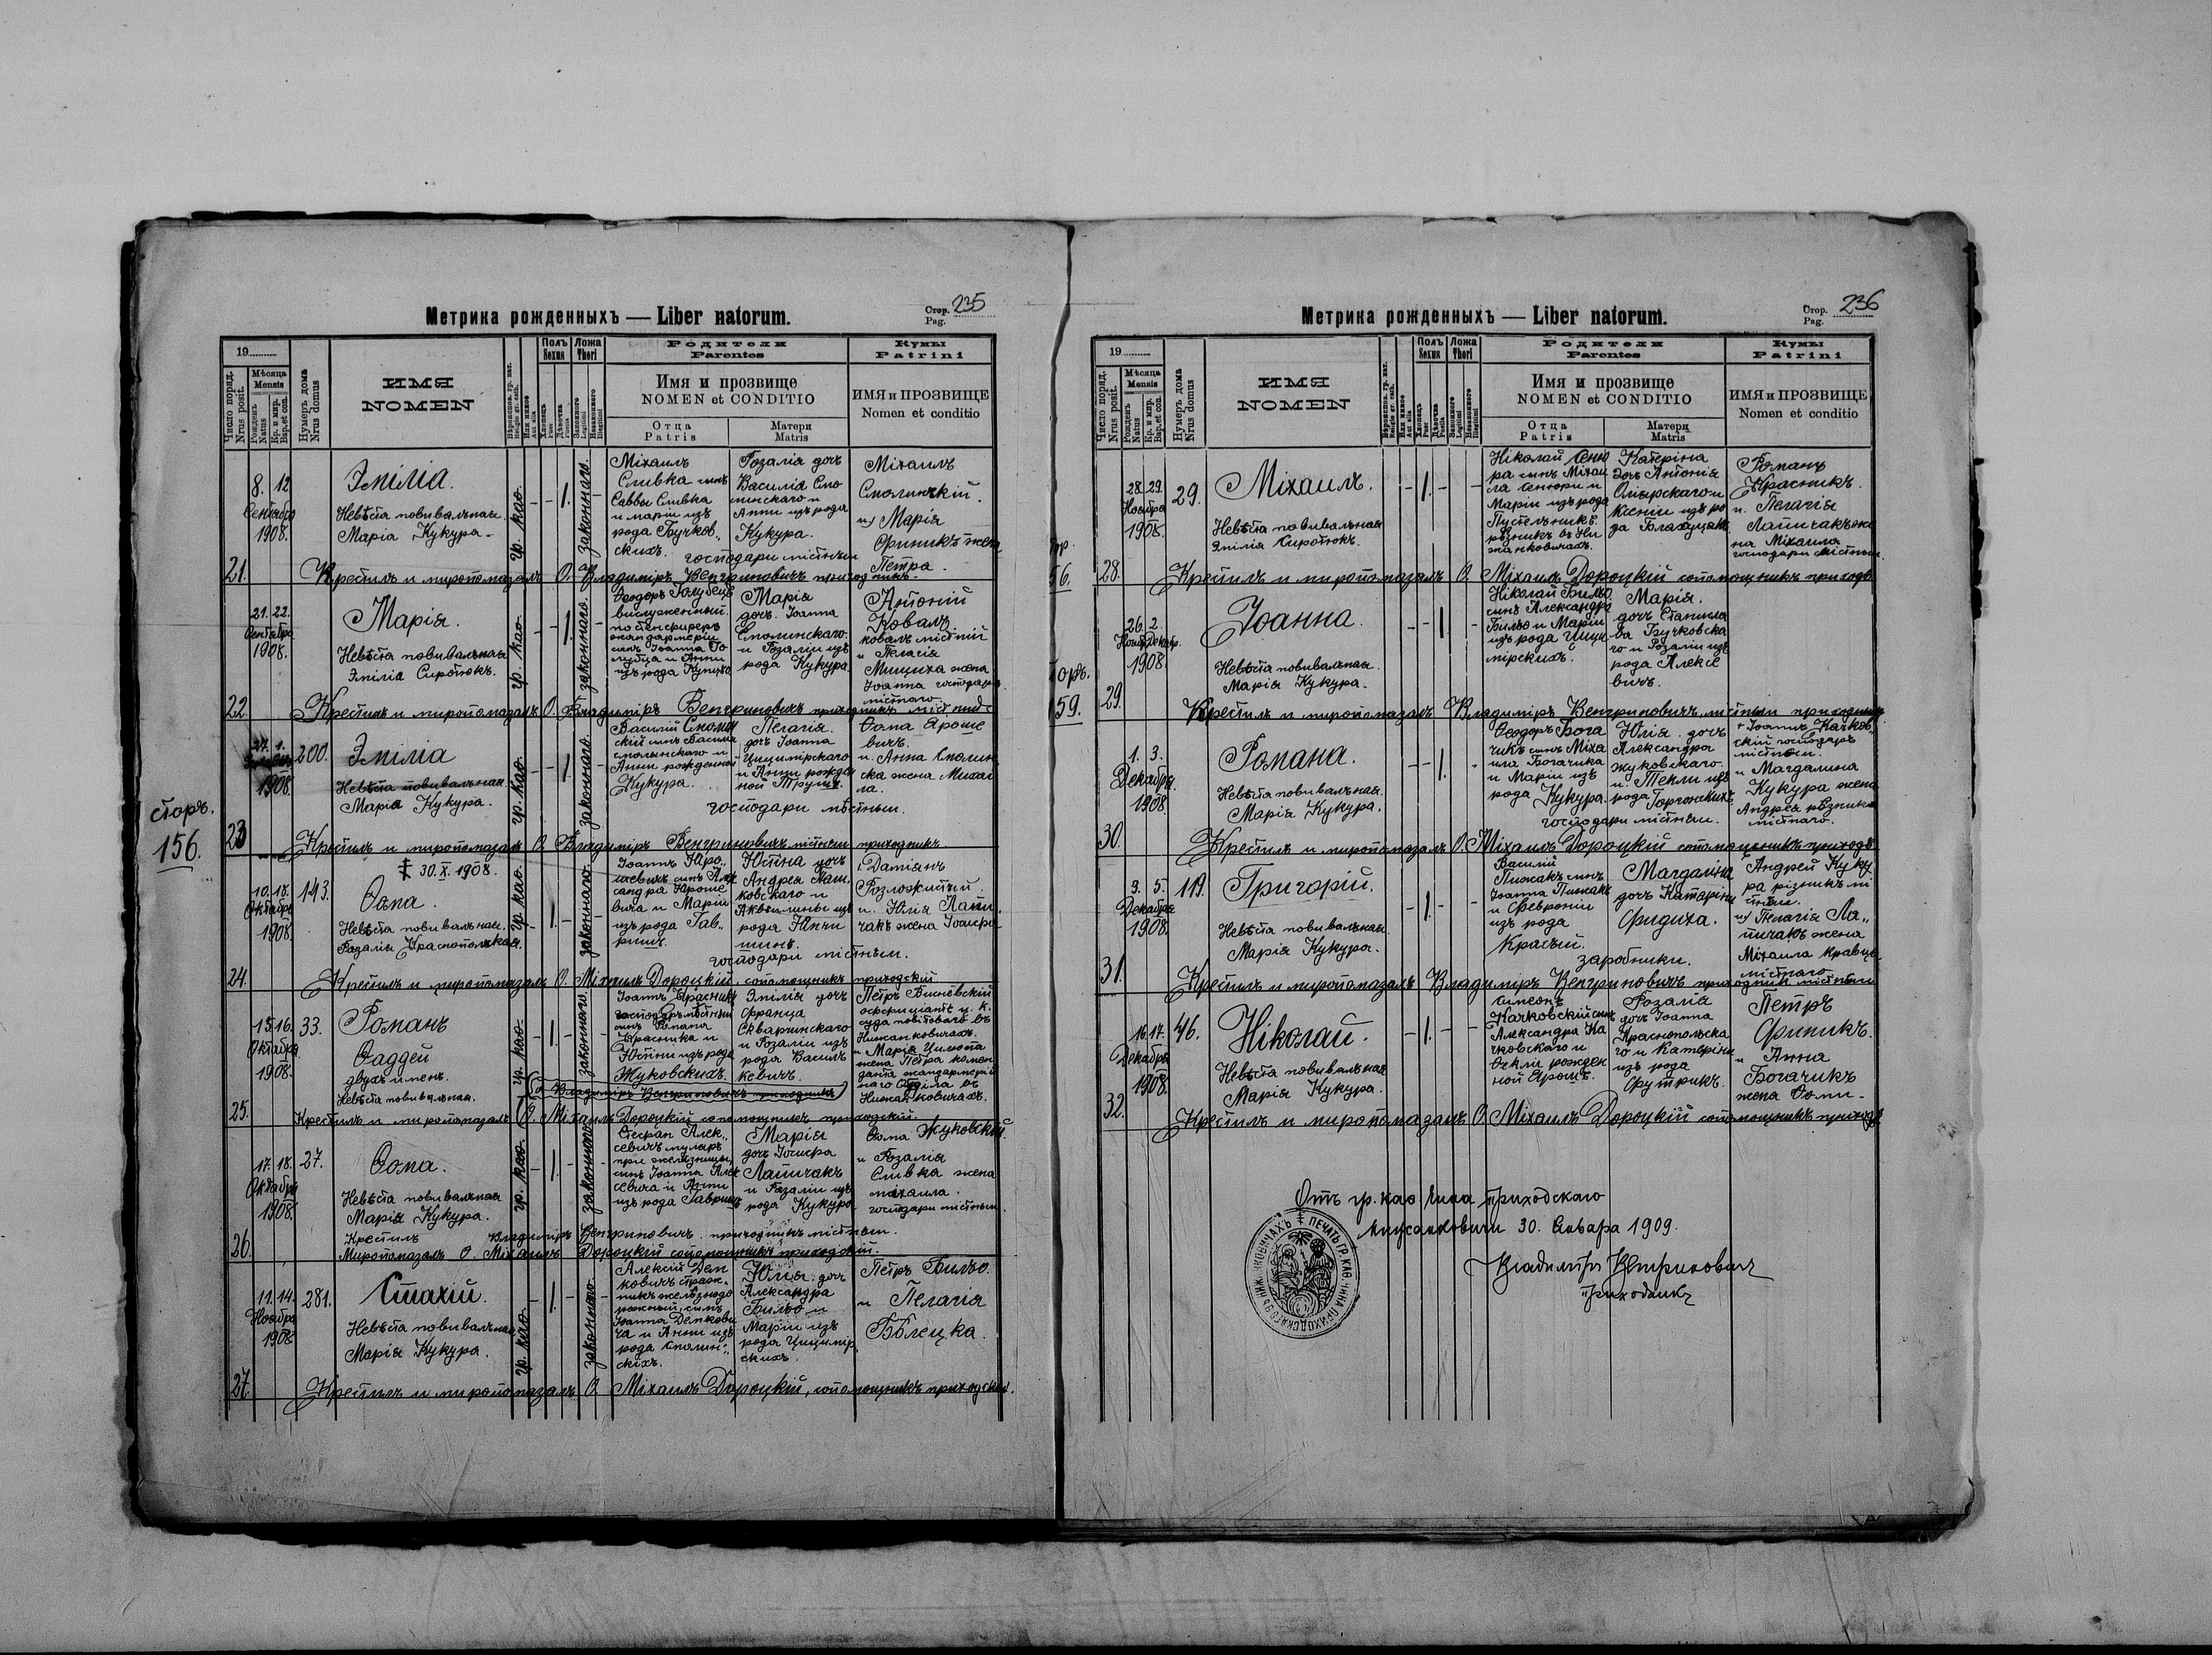 Метрика рожденныхъ — Liber natorum.
Стор. 235
Pag.
19
Число поряд.
Nrus posit.
Мѣсяца
Mensis
Рожденъ
Natus
Кр. и мир.
Bap. et con.
Нумеръ дома
Nrus domus
ИМЯ
NOMEN
Полъ
Sexus
Ложа
Thori
Родители
Parentes
Имя и прозвище
NOMEN et CONDITIO
Отца
Patris
Матери
Matris
Кумы
Patrini
ИМЯ и ПРОЗВИЩЕ
Nomen et conditio
21.
8. 12
Сентябр
1908.
Эмілія.
Невѣста повивальная
Марія Кукура.
гр. као.
1.
законнаго.
Міхаилъ
Сливка сынъ
Саввы Сливка
и маріи изъ
рода Бучков„
скихъ.
Розалія доч
Василіа Смо
линскаго и
Анни изъ рода
Кукура.
господари містныи
Міхаилъ
Смолинскій.
и Марія
Финикъ жена
Петра.
Крестилъ и миропомазалъ О. Владиміръ Венгриновичъ приходникъ.
22.
21. 22.
Сентября
1908.
Марія.
Невѣста повивальная
Эмілія Сиротюкъ.
гр. као.
1.
законнаго.
Ѳеодоръ Голубецъ
вислуженный
постенфиреръ
жандармеріи
синъ Іоанна Го
лубца и Анни
изъ рода Купцъ
Марія
доч. Іоанна
Смолинскаго
и Розаліи изъ
рода Кукура
Антоній
Коваль
коваль містній
и Пелагія
Мициха жена
Іоанна господаря
містнаго
Крестилъ и миропомазалъ О. Владиміръ Венгриновичъ приходникъ міст
23
1.
1908
200.
Эмілія
Невѣста повивальная
Марія Кукура.
гр. као.
1.
законнаго.
Василій Смолин
скій синъ Васила
смолинскаго и
Анни рожденной
Кукура.
Пелагія.
доч Іоанна
Цицимірскаго
и Анни рожден
ной Труш.
господари мѣстныи.
Ѳома Ярошe
вичъ.
и Анна Смолин
ска жена Михаи
ла.
Крестилъ и миропомазалъ О. Владиміръ Венгриновичъ містный приходникъ
сторъ.
156.
24.
10. 18.
Октабра
1908
143.
‡ 30. X. 1908.
Ѳома.
Невѣста повивальная.
Розалія Краснопольская.
гр. као.
1.
законнаго.
Іоаннъ Яро„
шевичъ синъ Алек
сандра Яроше
вича и Маріи
изъ рода Гав„
Юстина доч
Андрея Маш
ковскаго и
изъ
рода
господари містныи.
Даміянъ
и Юлія Лапи
чакъ жена Іосифа
Крестилъ и миропомазалъ О. Міхаилъ Дороцкій, сотомощникъ приходскій
25.
15. 16.
Октабра
1908.
33.
Романъ
Ѳаддей
двухъ именъ.
Невѣста повивальная.
гр. као.
1.
законнаго.
Іоаннъ Красникъ
господарь мѣстный
синъ Романа
Красника и
Юстини изъ рода
Жуковскихъ.
Эмілія доч
Франца
Скваринскаго
и Розаліи изъ
рода Василь
кевичъ.
Петръ
оффиціантъ ц. к.
суда повітового въ
Нижанковичахъ.
и Марія
жена Петра комен
данта жандармерій
наго оддѣла въ
Нижанковичахъ.
(О. Владиміръ Венгриновичъ приходникъ)
Крестилъ и миропомазалъ О. Міхаилъ Дороцкій сотомощникъ приходскій
26.
17. 18.
Октабра
1908.
27.
Ѳома.
Невѣста повивальная
Марія Кукура.
гр. као.
1.
законнаго
Стефан Алек„
севичъ муляръ
при желѣзницы,
синъ Іоанна Алек
севича и Анни
изъ рода Гаврилъ
Марія
доч Іосифа
Лапичакъ
и Розаліи изъ
рода Кукура
Ѳома Жуковскій.
и Розалія
Сливка жена
михаила.
господари містныи.
Крестилъ Владиміръ Венгриновичъ приходникъ містныи.
Миропомазалъ О. Міхаилъ Дороцкій сотомощникъ приходскій.
27.
11. 14.
Ноабра
1908
281.
Стахій.
Невѣста повивальная
Марія Кукура.
гр. као.
1.
законнаго.
Алексій Деп
ковичъ страж„
никъ желѣзнодо
рожный, синъ
Іоанна Депкови
ча и Анни изъ
рода Смолин„
скіхъ.
Юлія доч
Александра
Бильо и
Маріи изъ
рода Цицимір
скихъ.
Петръ Бильо.
и Пелагія
Бѣлецка.
Крестилъ и миропомазалъ О. Міхаилъ Дороцкій, сотомощникъ приходскій.
Метрика рожденныхъ — Liber natorum.
Стор. 236
Pag.
19
Число поряд.
Nrus posit.
Мѣсяца
Mensis
Рожденъ
Natus
Кр. и мир.
Bap. et con.
Нумеръ дома
Nrus domus
ИМЯ
NOMEN
Полъ
Sexus
Ложа
Thori
Родители
Parentes
Имя и прозвище
NOMEN et CONDITIO
Отца
Patris
Матери
Matris
Кумы
Patrini
ИМЯ и ПРОЗВИЩЕ
Nomen et conditio
56.
28.
28. 29.
Ноабра
1908.
29.
Міхаилъ.
Невѣста повивальная
Эмілія Сиротюкъ.
1.
Ніколай Сеню
ра синъ Міхаи
ла Сенюри и
Маріи изъ рода
Пустельникъ.
рѣзникъ въ Ни
жанковичахъ.
Катеріна
доч Антонія
Олярскаго и
Ксеніи изъ ро
да
Романъ
Красникъ.
и. Пелагія
Лапичакъ же
на Міхаила
господари містныи.
Крестилъ и миропомазалъ О. Міхаилъ Дороцкій сотомощникъ приходс
159.
29.
26. 2.
Декабр.
1908.
Іоанна.
Невѣста повивальная.
Марія Кукура.
1.
Ніколай Бильо
синъ Александра
Бильо и Маріи
изъ рода Цици
мірскихъ.
Марія.
доч Станисла
ва Бучковска
го и Розаліи изъ
рода Алексе
вичъ.
Крестилъ и миропомазалъ Владиміръ Венгриновичъ містный приходникъ
30.
1. 3.
Декабра
1908
Романа.
Невѣста повивальная.
Марія Кукура.
1.
Ѳеодоръ Бога
чикъ синъ Міха
ила Богачика
и Маріи изъ
рода Кукура.
Юлія доч
Александра
жуковскаго.
и. Текли изъ
рода
господари містныи.
Іоаннъ Качков
скій господаръ
містный.
и Магдалина
Кукура жена
Андрея рѣзника
містнаго.
Крестилъ и миропомазалъ О. Міхаилъ Дороцкій сотомощникъ приходс
31.
3. 5.
Декабра
1908.
119.
Григорій.
Невѣста повивальная
Марія Кукура.
1.
Василій
Пижакъ синъ
Іоанна Пижакъ
и Февроніи
изъ рода
Магдалина
доч Катеріни
Фидиха.
заробники.
Андрей Куку
ра різникъ мі
стный.
и Пелагія Ла„
пичакъ жена
Міхаила Кравца
містнаго
Крестилъ и миропомазалъ Владиміръ Венгриновичъ приходникъ містныи
32.
16. 17.
Декабра
1908.
46.
Ніколай.
Невѣста повивальная
Марія Кукура.
1.
Симеонъ
Качковскій синъ
Александра Ка
чковскаго и
Ѳекли рожден
ной Ярош.
Розалія
доч Іоанна
Краснопольска
го и Катеріни
изъ рода
Петръ
Финикъ.
и Анна
Богачикъ
жена Ѳоми.
Крестилъ и миропомазалъ О. Міхаилъ Дороцкій сотомощникъ приходс
Отъ гр. као Чина приходскаго
Нижанковичи 30. Января 1909.
Владиміръ Венгриновичъ
приходникъ
ПЕЧАТЬ ГР. КАѲ. ЧИНА ПРИХОДСКАГО ВЪ НИЖАНКОВИЧАХЪ